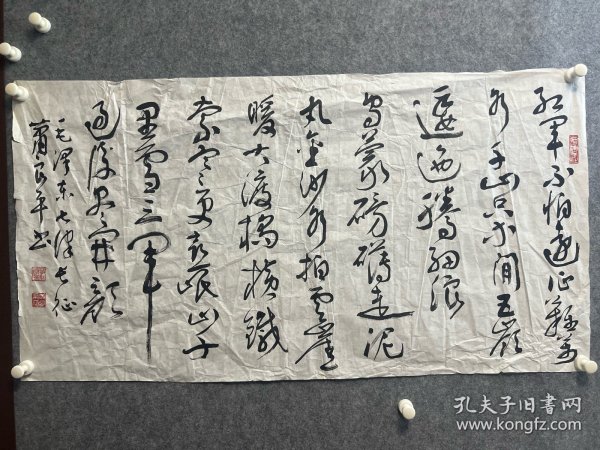 红军不怕远征难万
水千山只等闲五岭
逶迤腾细浪
乌蒙磅礴走泥
丸金沙水拍云崖
暖大渡桥横铁
索寒更喜岷山千
里雪三军
过后尽开颜
毛泽东七律长征
萧良平书
孔夫子旧书网
www.kongfz.com